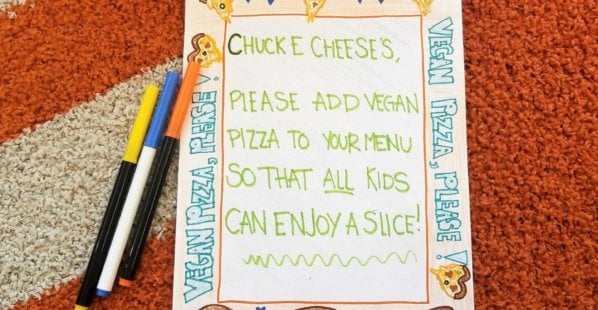 CHUCK E CHEESE'S,
PLEASE ADD VEGAN
PIZZA TO YOUR MENU
SO THAT ALL KIDS
CAN ENJOY A SLICE!
VEGAN PIZZA, PLEASE!
VEGAN PIZZA, PLEASE!